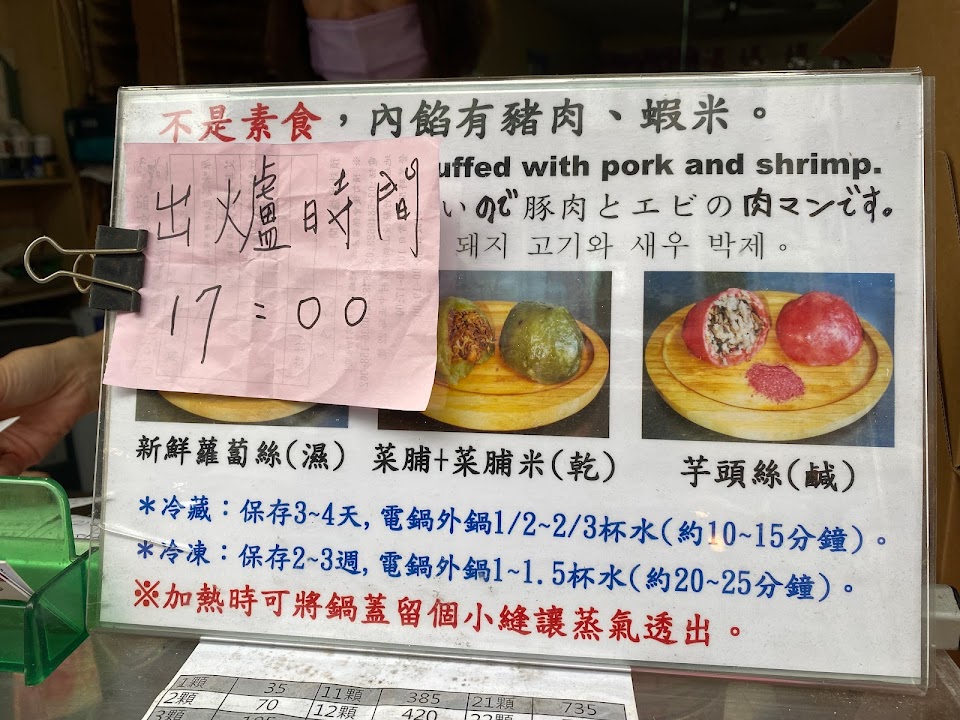 不是素食，內餡有豬肉、蝦米。
uffed with pork and shrimp.
いので豚肉とエビの肉マンです。
돼지 고기와 새우 박제。
出爐時間
17:00
新鮮蘿蔔絲(濕)
菜脯+菜脯米(乾)
芋頭絲(鹹)
＊冷藏：保存3~4天,電鍋外鍋1/2~2/3杯水(約10~15分鐘)。
＊冷凍：保存2~3週,電鍋外鍋1~1.5杯水(約20~25分鐘)。
※加熱時可將鍋蓋留個小縫讓蒸氣透出。
1顆 35 11顆 385 21顆 735
2顆 70 12顆 420